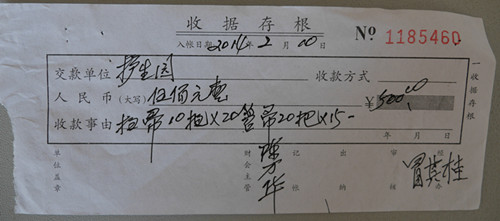 收据存根
№ 1185460
入帐日期 2014 年 2 月 20 日
交款单位 护生园 收款方式
人民币(大写) 伍佰元壹 ¥500.00
收款事由 拉帚10把×20 管帚20把×15
年 月 日
单位盖章 财会主管 记帐 出纳 审核 经办
陈万华 冒其桂
一收据存根